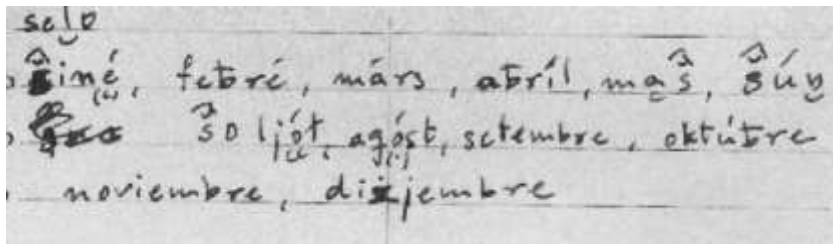 selo
ŝiné, febré, márs, abríl, maŝ, ŝúṉ
ŝoljót, agóst, setembre, oktúbre
noviembre, dizjembre